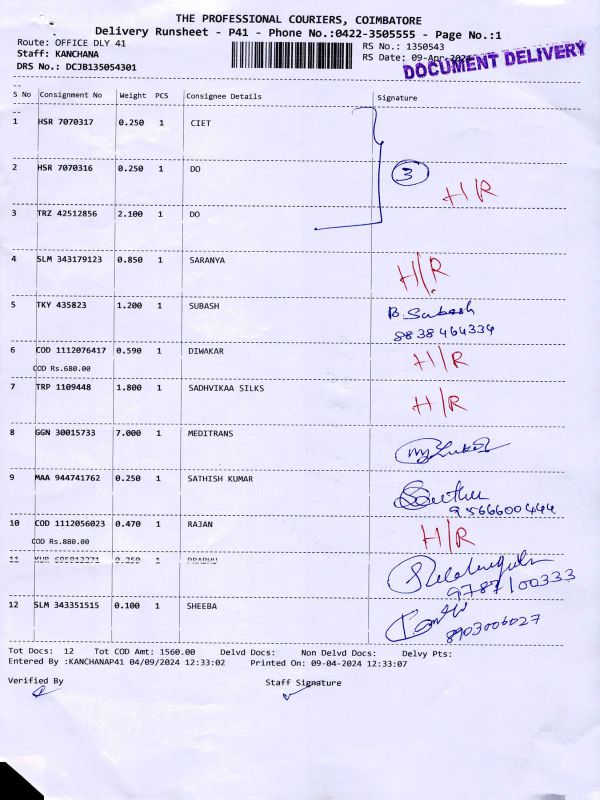 THE PROFESSIONAL COURIERS, COIMBATORE
Delivery Runsheet - P41 - Phone No.:0422-3505555 - Page No.:1
Route: OFFICE DLY 41
Staff: KANCHANA
DRS No.: DCJB135054301
RS No.: 1350543
RS Date: 09-Apr-2024
DOCUMENT DELIVERY
S No Consignment No Weight PCS Consignee Details Signature
1 HSR 7070317 0.250 1 CIET
2 HSR 7070316 0.250 1 DO 3 H/R
3 TRZ 42512856 2.100 1 DO
4 SLM 343179123 0.850 1 SARANYA H/R
5 TKY 435823 1.200 1 SUBASH B. Subash
8838464334
6 COD 1112076417 0.590 1 DIWAKAR H/R
COD Rs.680.00
7 TRP 1109448 1.800 1 SADHVIKAA SILKS H/R
8 GGN 30015733 7.000 1 MEDITRANS
9 MAA 944741762 0.250 1 SATHISH KUMAR
9566600444
10 COD 1112056023 0.470 1 RAJAN H/R
COD Rs.880.00
11 0.250 1 PRABHU
9787100333
12 SLM 343351515 0.100 1 SHEEBA
8903006027
Tot Docs: 12 Tot COD Amt: 1560.00 Delvd Docs: Non Delvd Docs: Delvy Pts:
Entered By :KANCHANAP41 04/09/2024 12:33:02 Printed On: 09-04-2024 12:33:07
Verified By Staff Signature